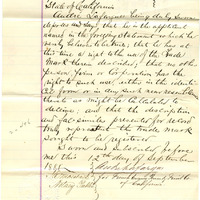 State of California
Andre Lafargue being duly sworn
deposes and says, that he is the applicant
named in the foregoing statement in which he
that he has
at this time a right to the use of the Trade
Mark therein described; that no other
person, firm or Corporation has the
right to such use, either in the identi-
cal form or in any such near resemblance
thereto as might be calculated to
deceive; and that the description
and fac-similes presented for record
truly represent the Trade Mark
sought to be registered
Subscribed before
me this 12th day of September
188
Notary Public
of California